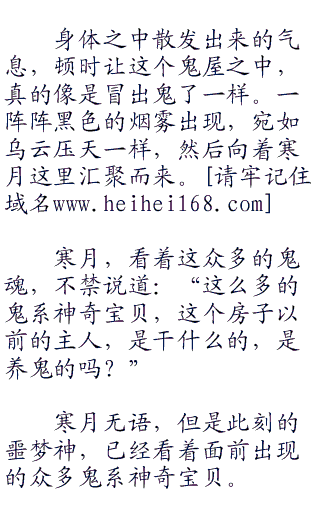 身体之中散发出来的气
息，顿时让这个鬼屋之中，
真的像是冒出鬼了一样。一
阵阵黑色的烟雾出现，宛如
乌云压天一样，然后向着寒
月这里汇聚而来。[请牢记住
域名www.heihei168.com]
寒月，看着这众多的鬼
魂，不禁说道：“这么多的
鬼系神奇宝贝，这个房子以
前的主人，是干什么的，是
养鬼的吗？”
寒月无语，但是此刻的
噩梦神，已经看着面前出现
的众多鬼系神奇宝贝。